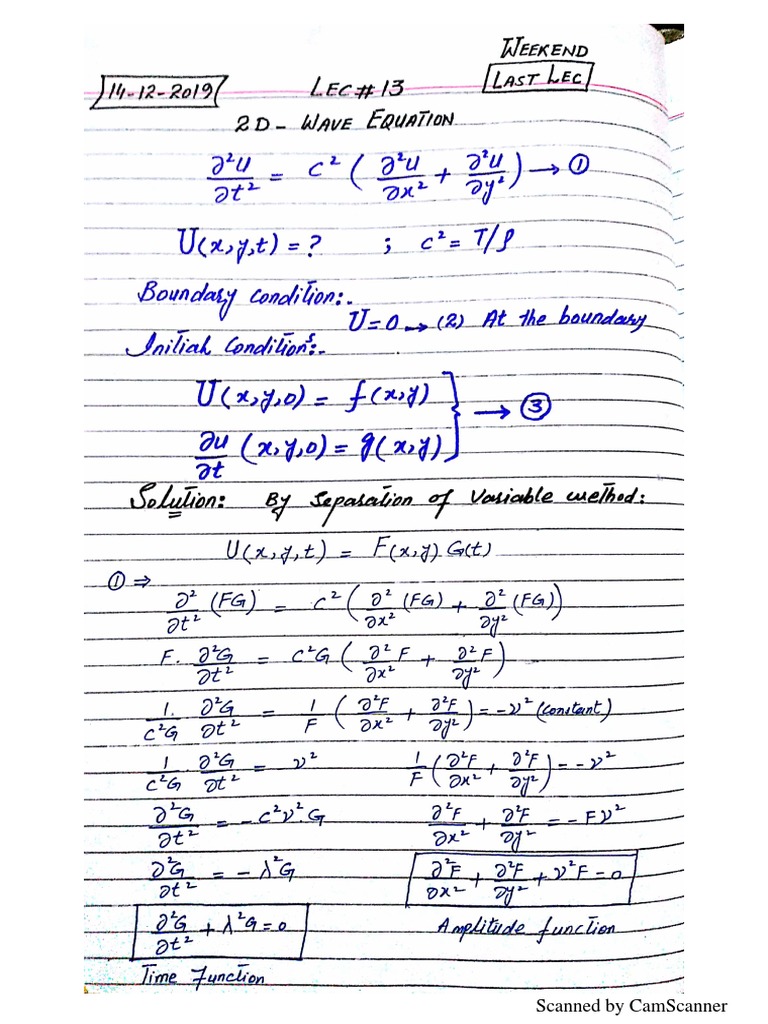 WEEKEND
14-12-2019 LEC # 13 LAST LEC
2D - WAVE EQUATION
∂²U/∂t² = C² ( ∂²U/∂x² + ∂²U/∂y² ) → ①
U(x,y,t) = ? ; C² = T/ρ
Boundary condition:.
U=0 → (2) At the boundary
Initial Conditions:.
U(x,y,0) = f(x,y)
∂u/∂t (x,y,0) = g(x,y) } → ③
Solution: By Separation of Variable method:
U(x,y,t) = F(x,y) G(t)
① ⇒
∂²/∂t² (FG) = C² ( ∂²/∂x² (FG) + ∂²/∂y² (FG) )
F. ∂²G/∂t² = C²G ( ∂²F/∂x² + ∂²F/∂y² )
1/C²G . ∂²G/∂t² = 1/F ( ∂²F/∂x² + ∂²F/∂y² ) = -ν² (constant)
1/C²G ∂²G/∂t² = ν² 1/F ( ∂²F/∂x² + ∂²F/∂y² ) = -ν²
∂²G/∂t² = -C²ν²G ∂²F/∂x² + ∂²F/∂y² = -Fν²
∂²G/∂t² = -λ²G ∂²F/∂x² + ∂²F/∂y² + ν²F = 0
∂²G/∂t² + λ²G = 0 Amplitude function
Time Function
Scanned by CamScanner